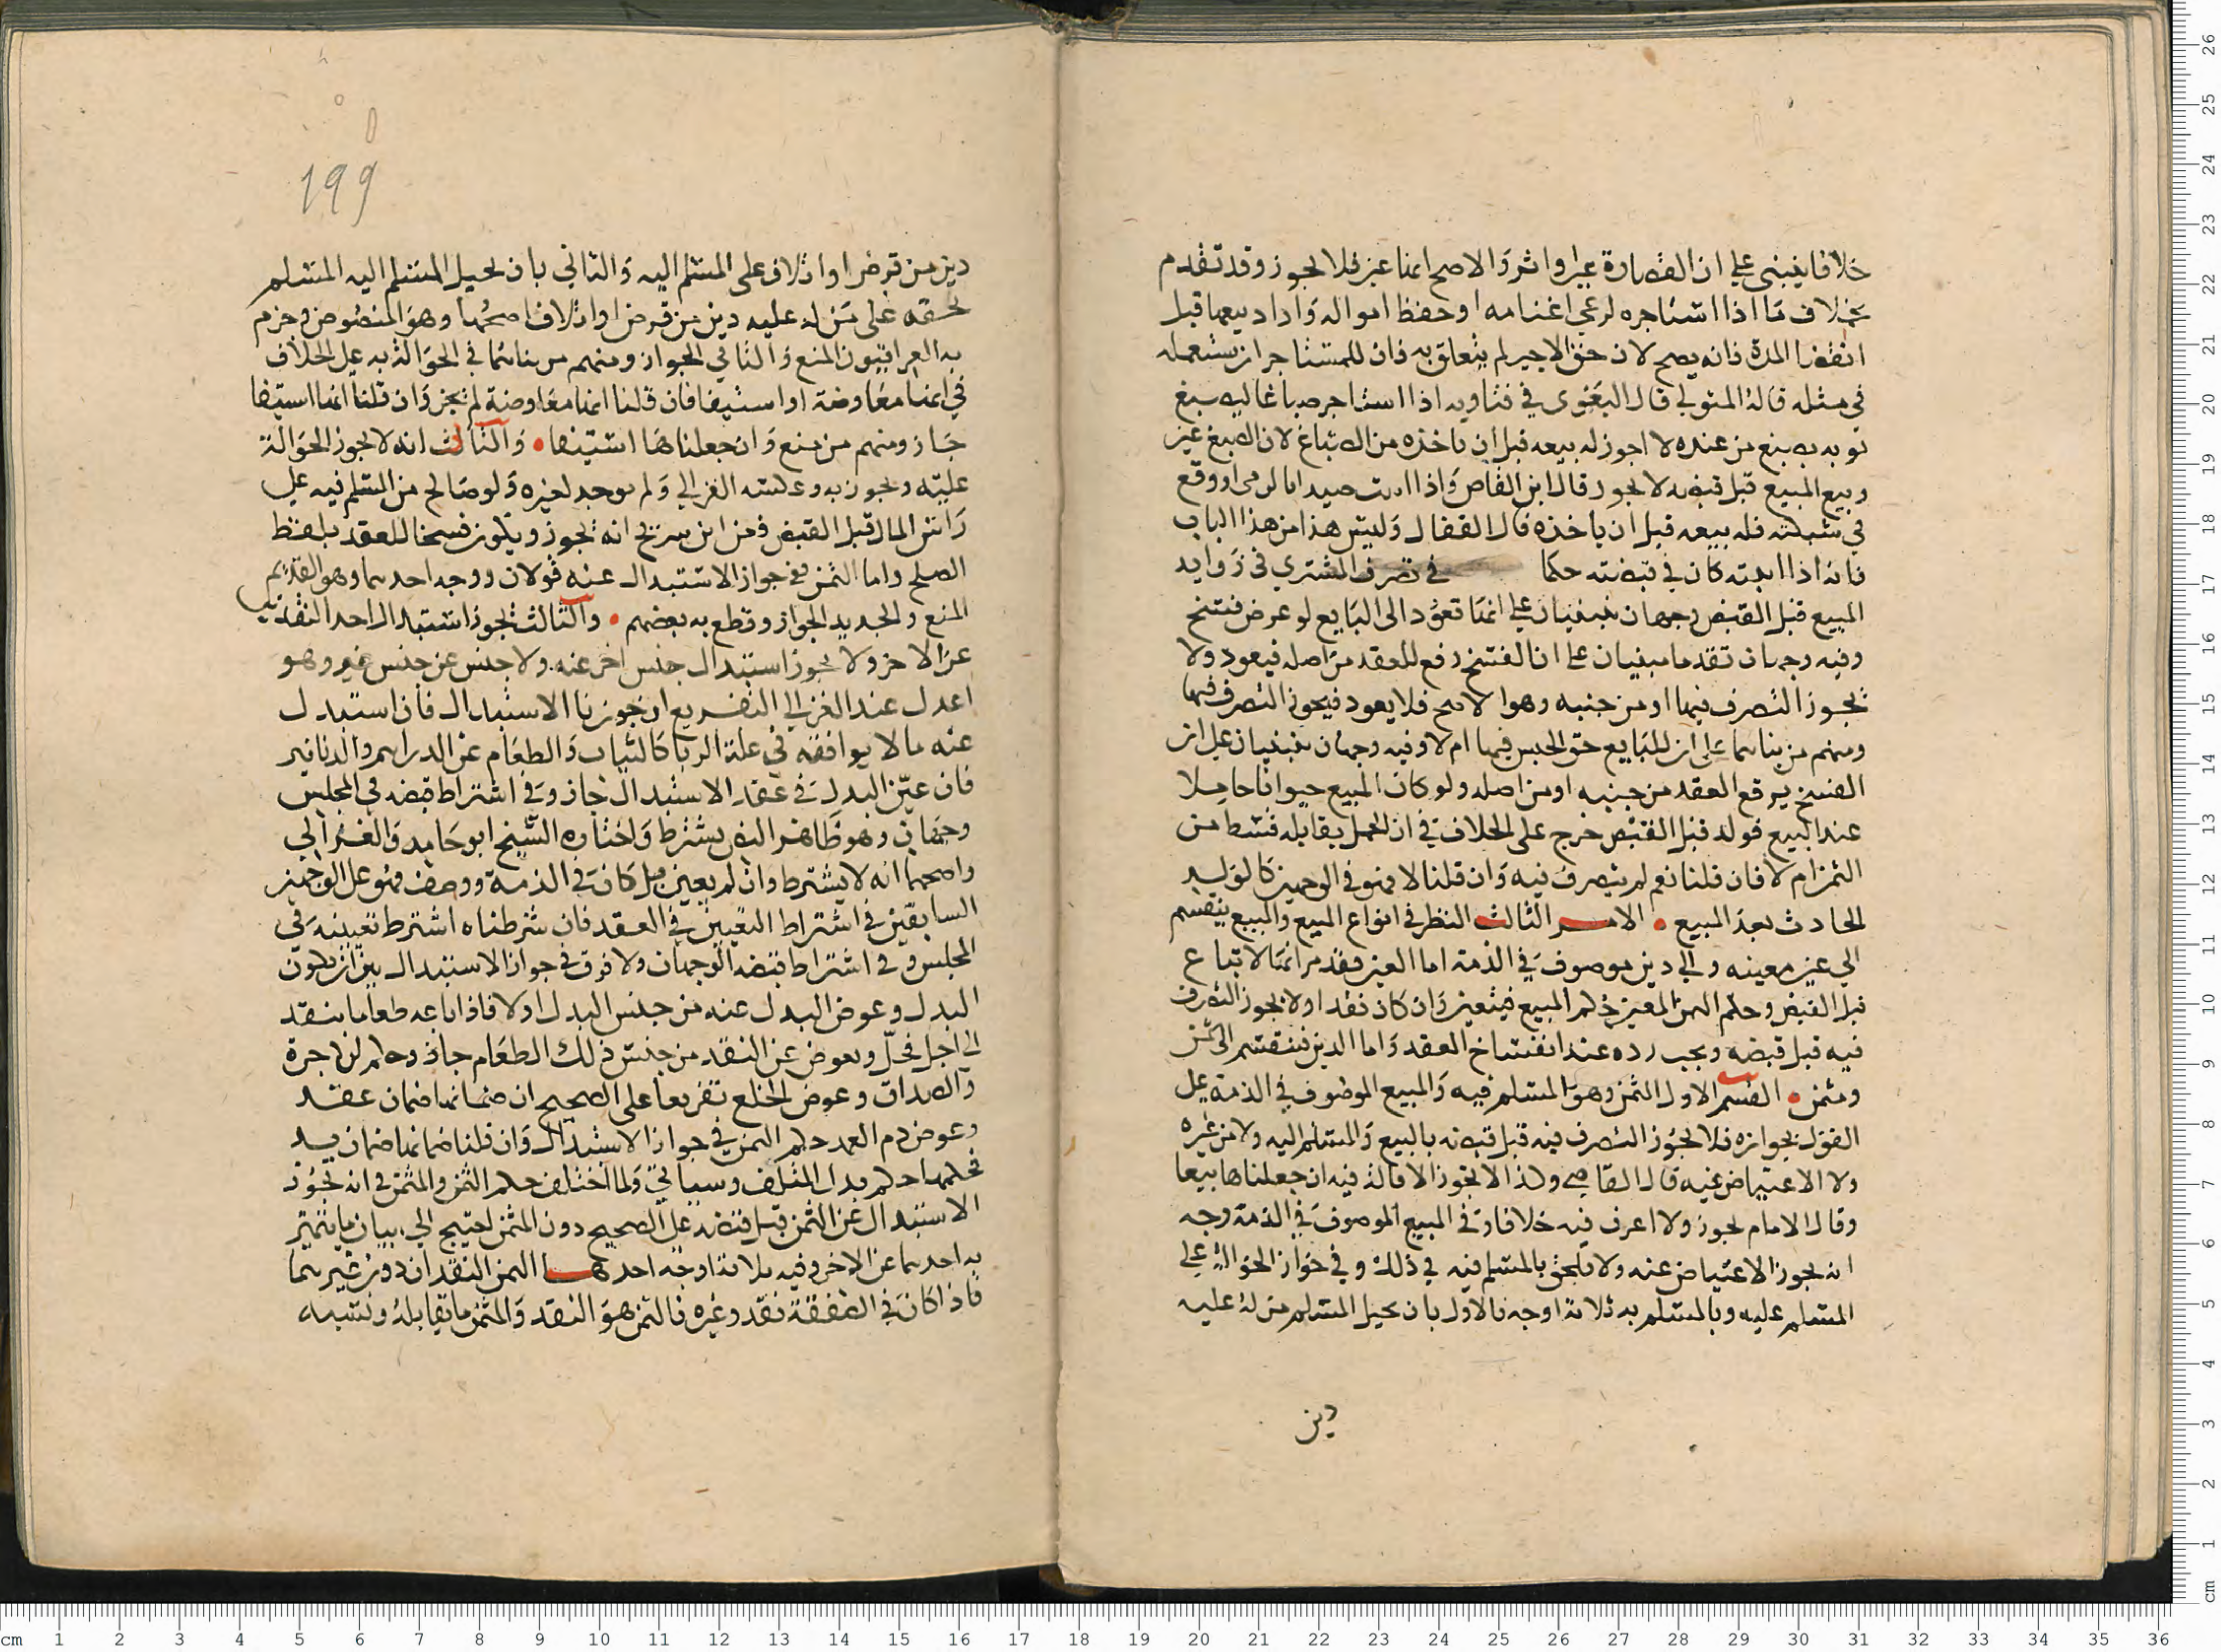 خلافا ينبنى على ان القصارة عين او اثر والاصح انها عين فلا يجوز وقد تقدم
بخلاف ما اذا استاجره لرعى اغنامه او حفظ امواله واراد بيعها قبل
انقضا المدة فانه يصح لان حق الاجير لم يتعلق به فان للمستاجر ان يستعمله
في مثله قاله المتولي قال البغوى في فتاويه اذا استاجر صباغا ليصبغ
ثوبه بصبغ من عنده لا اجوز له بيعه قبل ان ياخذه من الصباغ لان الصبغ عين
وبيع المبيع قبل قبضه لا يجوز قال ابن القاص واذا اثبت صيدا بالرمي او وقع
في شبكته فله بيعه قبل ان ياخذه قال القفال وليس هذا من هذا الباب
فانه اذا اثبته كان في قبضته حكما في تصرف المشتري في زوايد
المبيع قبل القبض وجهان مبنيان على انها تعود الى البايع لو عرض فسخ
وفيه وجهان تقدما مبنيان على ان الفسخ رفع للعقد من اصله فيعود ولا
يجوز التصرف فيها او من حينه وهو الاصح فلا يعود فيجوز التصرف فيها
ومنهم من بناهما على ان للبايع حق الحبس فيها ام لا وفيه وجهان مبنيان على ان
الفسخ يرفع العقد من حينه او من اصله ولو كان المبيع حيوانا حاملا
عند البيع فولد قبل القبض خرج على الخلاف في ان الحمل يقابله قسط من
الثمن ام لا فان قلنا نعم لم يتصرف فيه وان قلنا لا فهو في الوجهين كالولد
الحادث بعد المبيع • الامر الثالث النظر في انواع المبيع والمبيع ينقسم
الي عين معينه والي دين موصوف في الذمة اما العين فقد مر انها لا تباع
قبل القبض وحكم الثمن المعين حكم المبيع فيتعين وان كان نقدا ولا يجوز التصرف
فيه قبل قبضه ويجب رده عند انفساخ العقد واما الدين فينقسم الى ثمن
ومثمن • القسم الاول الثمن وهو المسلم فيه والمبيع الموصوف في الذمة على
القول بجوازه فلا يجوز التصرف فيه قبل قبضه بالبيع والمسلم اليه ولا من غيره
ولا الاعتياض عنه قال القاضي ولذا لا تجوز الاقالة فيه ان جعلناها بيعا
وقال الامام يجوز ولا اعرف فيه خلافا وفي المبيع الموصوف في الذمة وجه
انه يجوز الاعتياض عنه ولا يلحق بالمسلم فيه في ذلك وفي جواز الحوالة على
المسلم عليه وبالمسلم به ثلاثة اوجه فالاول بان يحيل المسلم من له عليه
دين
199
دين من قرض او اتلاف على المسلم اليه والثاني بان يحيل المسلم اليه المسلم
بحقه على من له عليه دين من قرض او اتلاف اصحها وهو المنصوص وجزم
به العراقيون المنع والثاني الجواز ومنهم من بناهما في الحوالة به على الخلاف
في انها معاوضة او استيفا فان قلنا انها معاوضة لم تجز وان قلنا انها استيفا
جاز ومنهم من منع وان جعلناها استيفا • والثالث انه لا يجوز الحوالة
عليه ويجوز به وعكسه الغزالي ولم يوجد لغيره ولو صالح من المسلم فيه على
راس المال قبل القبض فعن ابن سريج انه يجوز ويكون فسخا للعقد بلفظ
الصلح واما الثمن ففي جواز الاستبدال عنه قولان ووجه احدهما وهو القديم
المنع والجديد الجواز وقطع به بعضهم • والثالث يجوز استبدال احد النقدين
عن الاخر ولا يجوز استبدال جنس اخر عنه ولا جنس عن جنس غيره وهو
اعدل عند الغزالي التفريع ان جوزنا الاستبدال فان استبدل
عنه ما لا يوافقه في علة الربا كالثياب والطعام عن الدراهم والدنانير
فان عين البدل في عقد الاستبدال جاز وفي اشتراط قبضه في المجلس
وجهان وهو ظاهر النص يشترط واختاره الشيخ ابو حامد والغزالي
واصحهما انه لا يشترط وان لم يعين بل كان في الذمة ووصف فهو على الوجهين
السابقين في اشتراط التعيين في العقد فان شرطناه اشترط تعيينه في
المجلس وفي اشتراط قبضه الوجهان ولا فرق في جواز الاستبدال بين ان يكون
البدل وعوض البدل عنه من جنس البدل اولا فاذا باعه طعاما بنقد
الى اجل فحل وعوض عن النقد من جنس ذلك الطعام جاز وحكم الاجرة
والصداق وعوض الخلع تفريعا على الصحيح ان ضمانها ضمان عقد
وعوض دم العمد حكم الثمن في جواز الاستبدال وان قلنا ضمانها ضمان يد
فحكمها حكم بدل المتلف وسياتي ولما اختلف حكم الثمن والمثمن في انه يجوز
الاستبدال عن الثمن قبل قبضه على الصحيح دون المثمن احتيج الي بيان ما يتميز
به احدهما عن الاخر وفيه ثلاثة اوجه احدها الثمن النقدان دون غيرهما
فاذا كان في الصفقة نقد وغيره فالثمن هو النقد والمثمن ما يقابله ونسبه